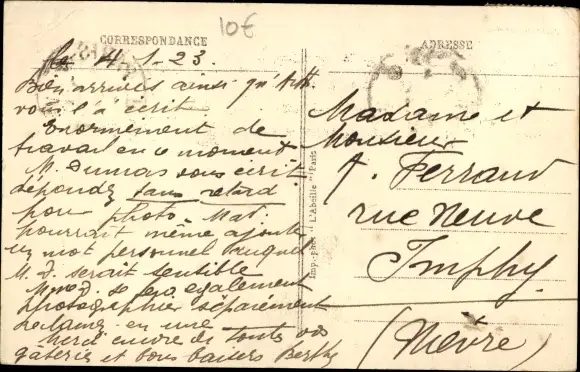 10€
CORRESPONDANCE
le 4.1.23.
Bien arrivés ainsi qu'
vous l'a écrit
Enormement de
travail en ce moment
M. Dumas vous écrit
répondez sans retard
pour photo. Mat.
pourrait même ajouter
un mot personnel auquel
M. D. serait sensible
Mme D. se fera également
photographier séparément
réclamez en une
Merci encore de toutes vos
gateries et bons baisers Berthe
Imp.-phot. "L'Abeille" Paris
ADRESSE
Madame et
Monsieur
A. Ferrand
rue Neuve
Imphy
(Nièvre)